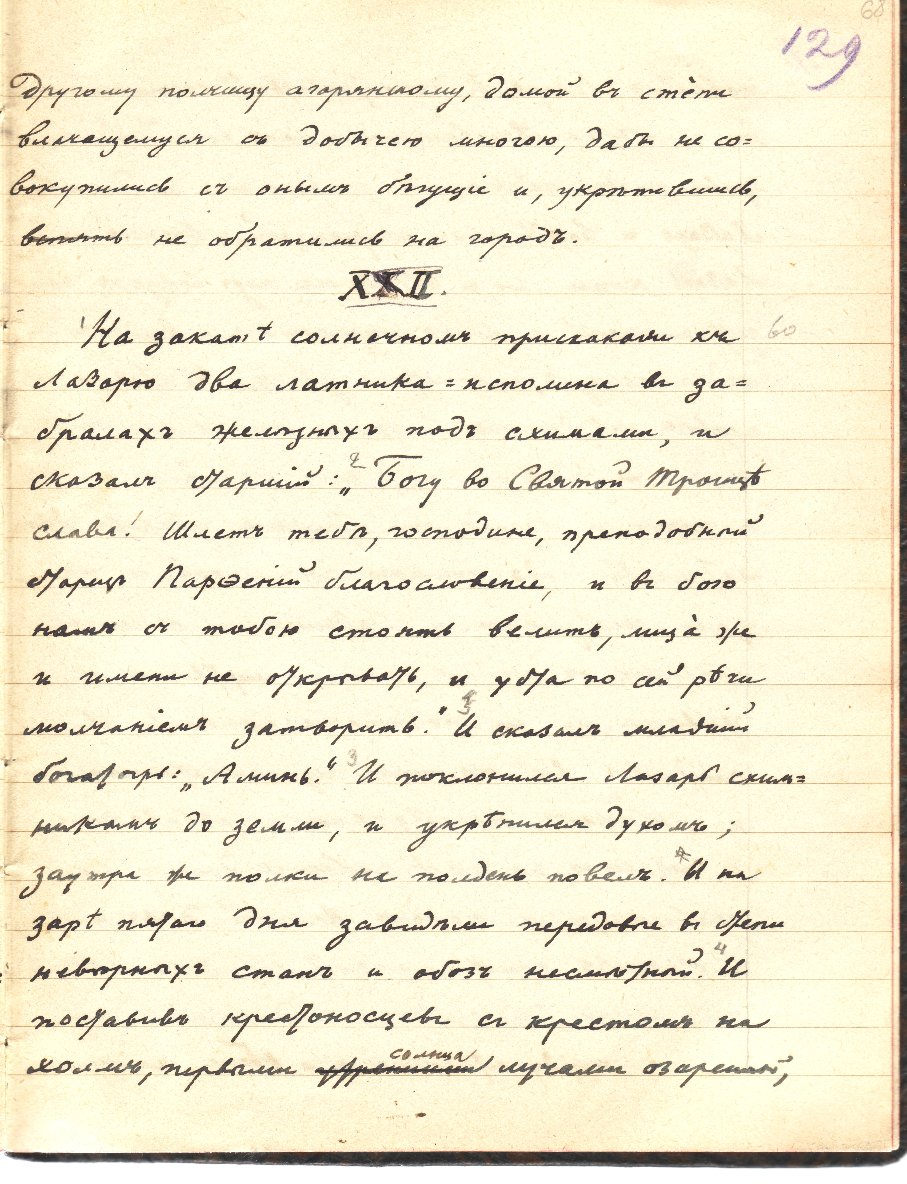 68
129
другому полчищу агарянскому, домой въ степи
влачащемуся съ добычею многою, дабы не со=
вокупились съ онымъ бѣгущіе и, укрѣпившись,
вспять не обратились на городъ.
XXII.
1 На закатѣ солнечномъ прискакали къ 60
Лазарю два латника=исполина въ за=
бралахъ желѣзныхъ подъ схимами, и
сказалъ старшій: 2 „Богу во Святой Троицѣ
слава! Шлетъ тебѣ, господине, преподобный
старецъ Парѳеній благословеніе, и въ бою
намъ съ тобою стоять велитъ, лица же
и имени не открывать, и уста по сей рѣчи
молчаніемъ затворить." И сказалъ младшій
богатырь: „Аминь." 3 И поклонился Лазарь схим=
никамъ до земли, и укрѣпился духомъ;
заутра же полки на полдень повелъ. И на
зарѣ пятаго дня завидѣли передовые въ степи
невѣрныхъ станъ и обозъ несмѣтный. 4 И
поставивъ крестоносцевъ съ крестомъ на
холмъ, первыми утренними солнца лучами озаренный,